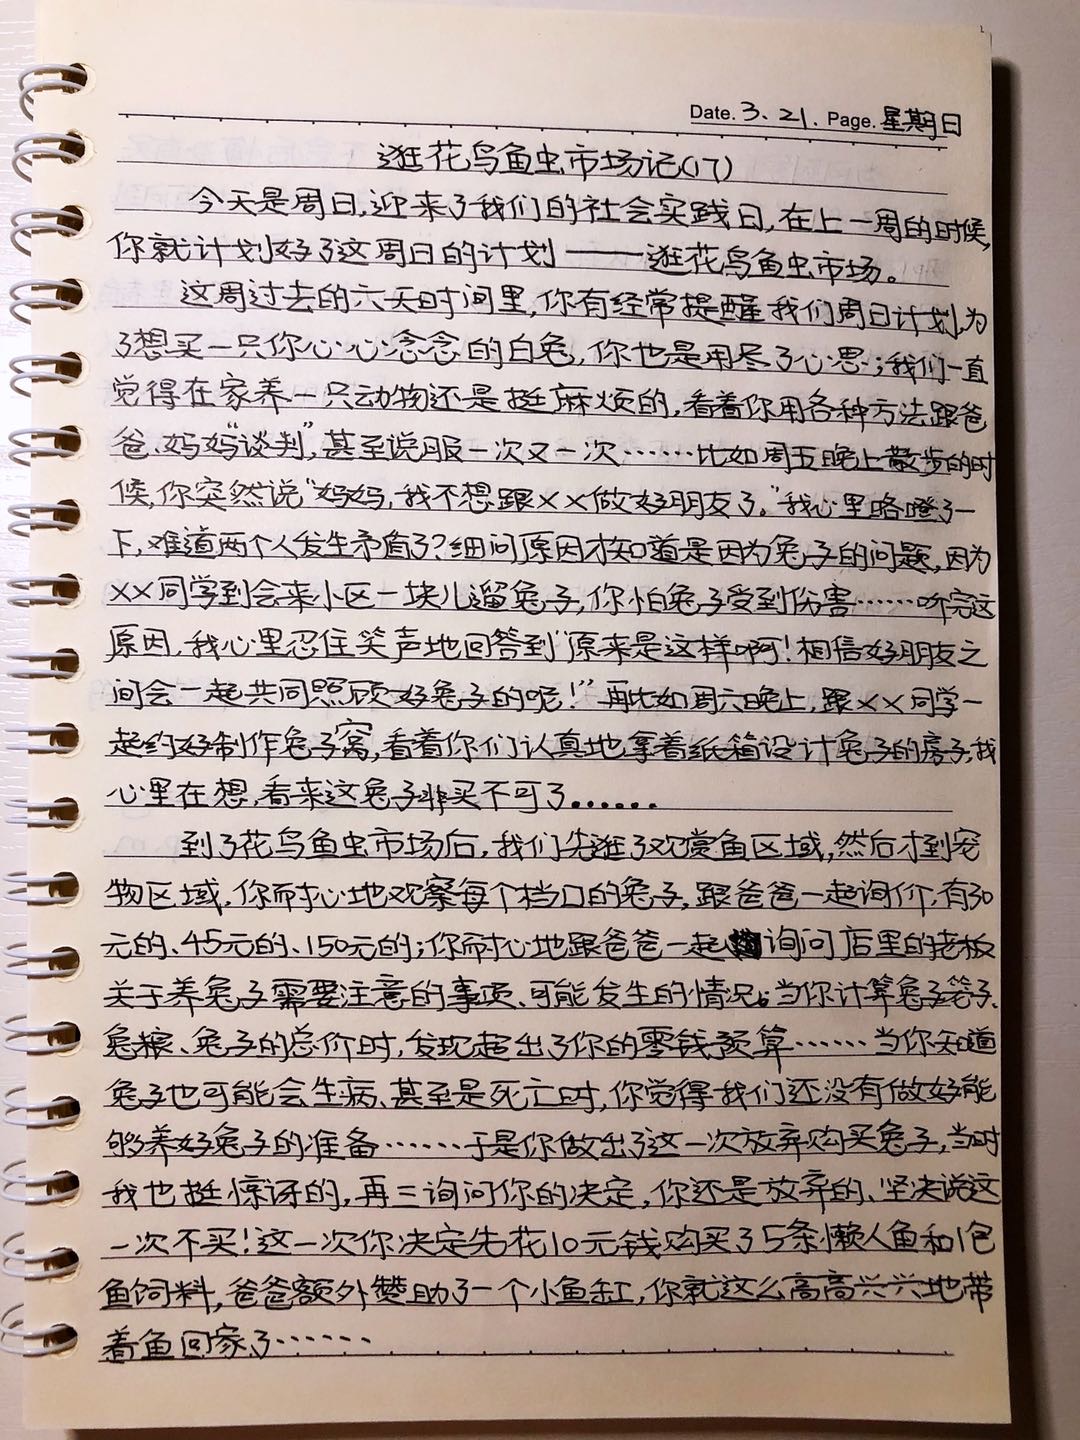 Date. 3. 21. Page. 星期日
逛花鸟鱼虫市场记(17)
今天是周日,迎来了我们的社会实践日,在上一周的时候,
你就计划好了这周日的计划——逛花鸟鱼虫市场。
这周过去的六天时间里,你有经常提醒我们周日计划,为
了想买一只你心心念念的白兔,你也是用尽了心思;我们一直
觉得在家养一只动物还是挺麻烦的,看着你用各种方法跟爸
爸、妈妈“谈判”,甚至说服一次又一次……比如周五晚上散步的时
候,你突然说“妈妈,我不想跟××做好朋友了。”我心里咯噔了一
下,难道两个人发生矛盾了?细问原因才知道是因为兔子的问题,因为
××同学到会来小区一块儿遛兔子,你怕兔子受到伤害……听完这
原因,我心里忍住笑声地回答到“原来是这样啊!相信好朋友之
间会一起共同照顾好兔子的呢!”再比如周六晚上,跟××同学一
起约好制作兔子窝,看着你们认真地拿着纸箱设计兔子的房子,我
心里在想,看来这兔子非买不可了......
到了花鸟鱼虫市场后,我们先逛了观赏鱼区域,然后才到宠
物区域,你耐心地观察每个档口的兔子,跟爸爸一起询价,有30
元的、45元的、150元的;你耐心地跟爸爸一起询问店里的老板
关于养兔子需要注意的事项、可能发生的情况。当你计算兔子笼子、
兔粮、兔子的总价时,发现超出了你的零钱预算……当你知道
兔子也可能会生病、甚至是死亡时,你觉得我们还没有做好能
够养好兔子的准备……于是你做出了这一次放弃购买兔子,当时
我也挺惊讶的,再三询问你的决定,你还是放弃的、坚决说这
一次不买!这一次你决定先花10元钱购买了5条懒人鱼和1包
鱼饲料,爸爸额外赞助了一个小鱼缸,你就这么高高兴兴地带
着鱼回家了……